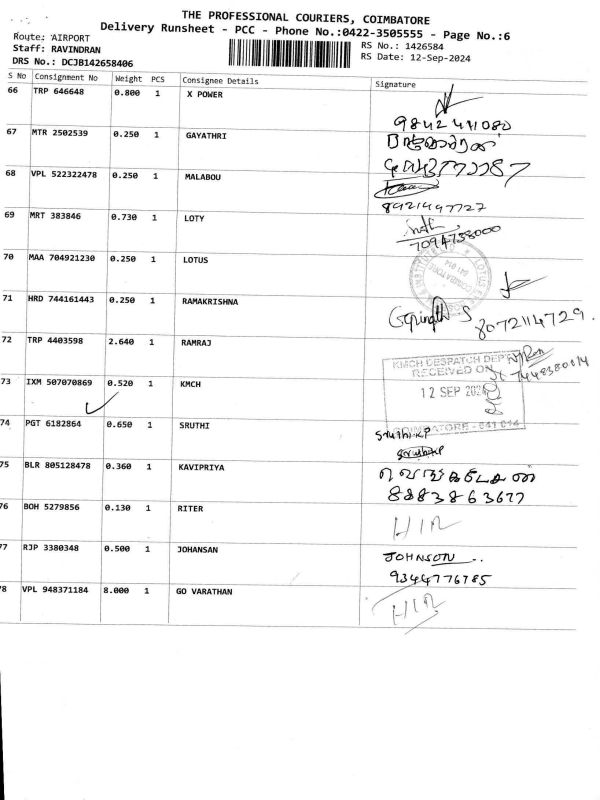 THE PROFESSIONAL COURIERS, COIMBATORE
Delivery Runsheet - PCC - Phone No.:0422-3505555 - Page No.:6
Route: AIRPORT
Staff: RAVINDRAN
DRS No.: DCJB142658406
RS No.: 1426584
RS Date: 12-Sep-2024
S No Consignment No Weight PCS Consignee Details Signature
66 TRP 646648 0.800 1 X POWER
9842411080
67 MTR 2502539 0.250 1 GAYATHRI
68 VPL 522322478 0.250 1 MALABOU
8921497727
69 MRT 383846 0.730 1 LOTY
7094738000
70 MAA 704921230 0.250 1 LOTUS
COIMBATORE
641 014
71 HRD 744161443 0.250 1 RAMAKRISHNA
Gopinath S 8072114729.
72 TRP 4403598 2.640 1 RAMRAJ
KMCH DESPATCH DEPT
RECEIVED ON
7448380014
73 IXM 507070869 0.520 1 KMCH
12 SEP 2024
COIMBATORE - 641 014
74 PGT 6182864 0.650 1 SRUTHI
Sruthi KP
75 BLR 805128478 0.360 1 KAVIPRIYA
வெங்கடேசன்
8883863677
76 BOH 5279856 0.130 1 RITER
HIR
77 RJP 3380348 0.500 1 JOHANSAN
JOHNSON
9344776785
78 VPL 948371184 8.000 1 GO VARATHAN
HIR